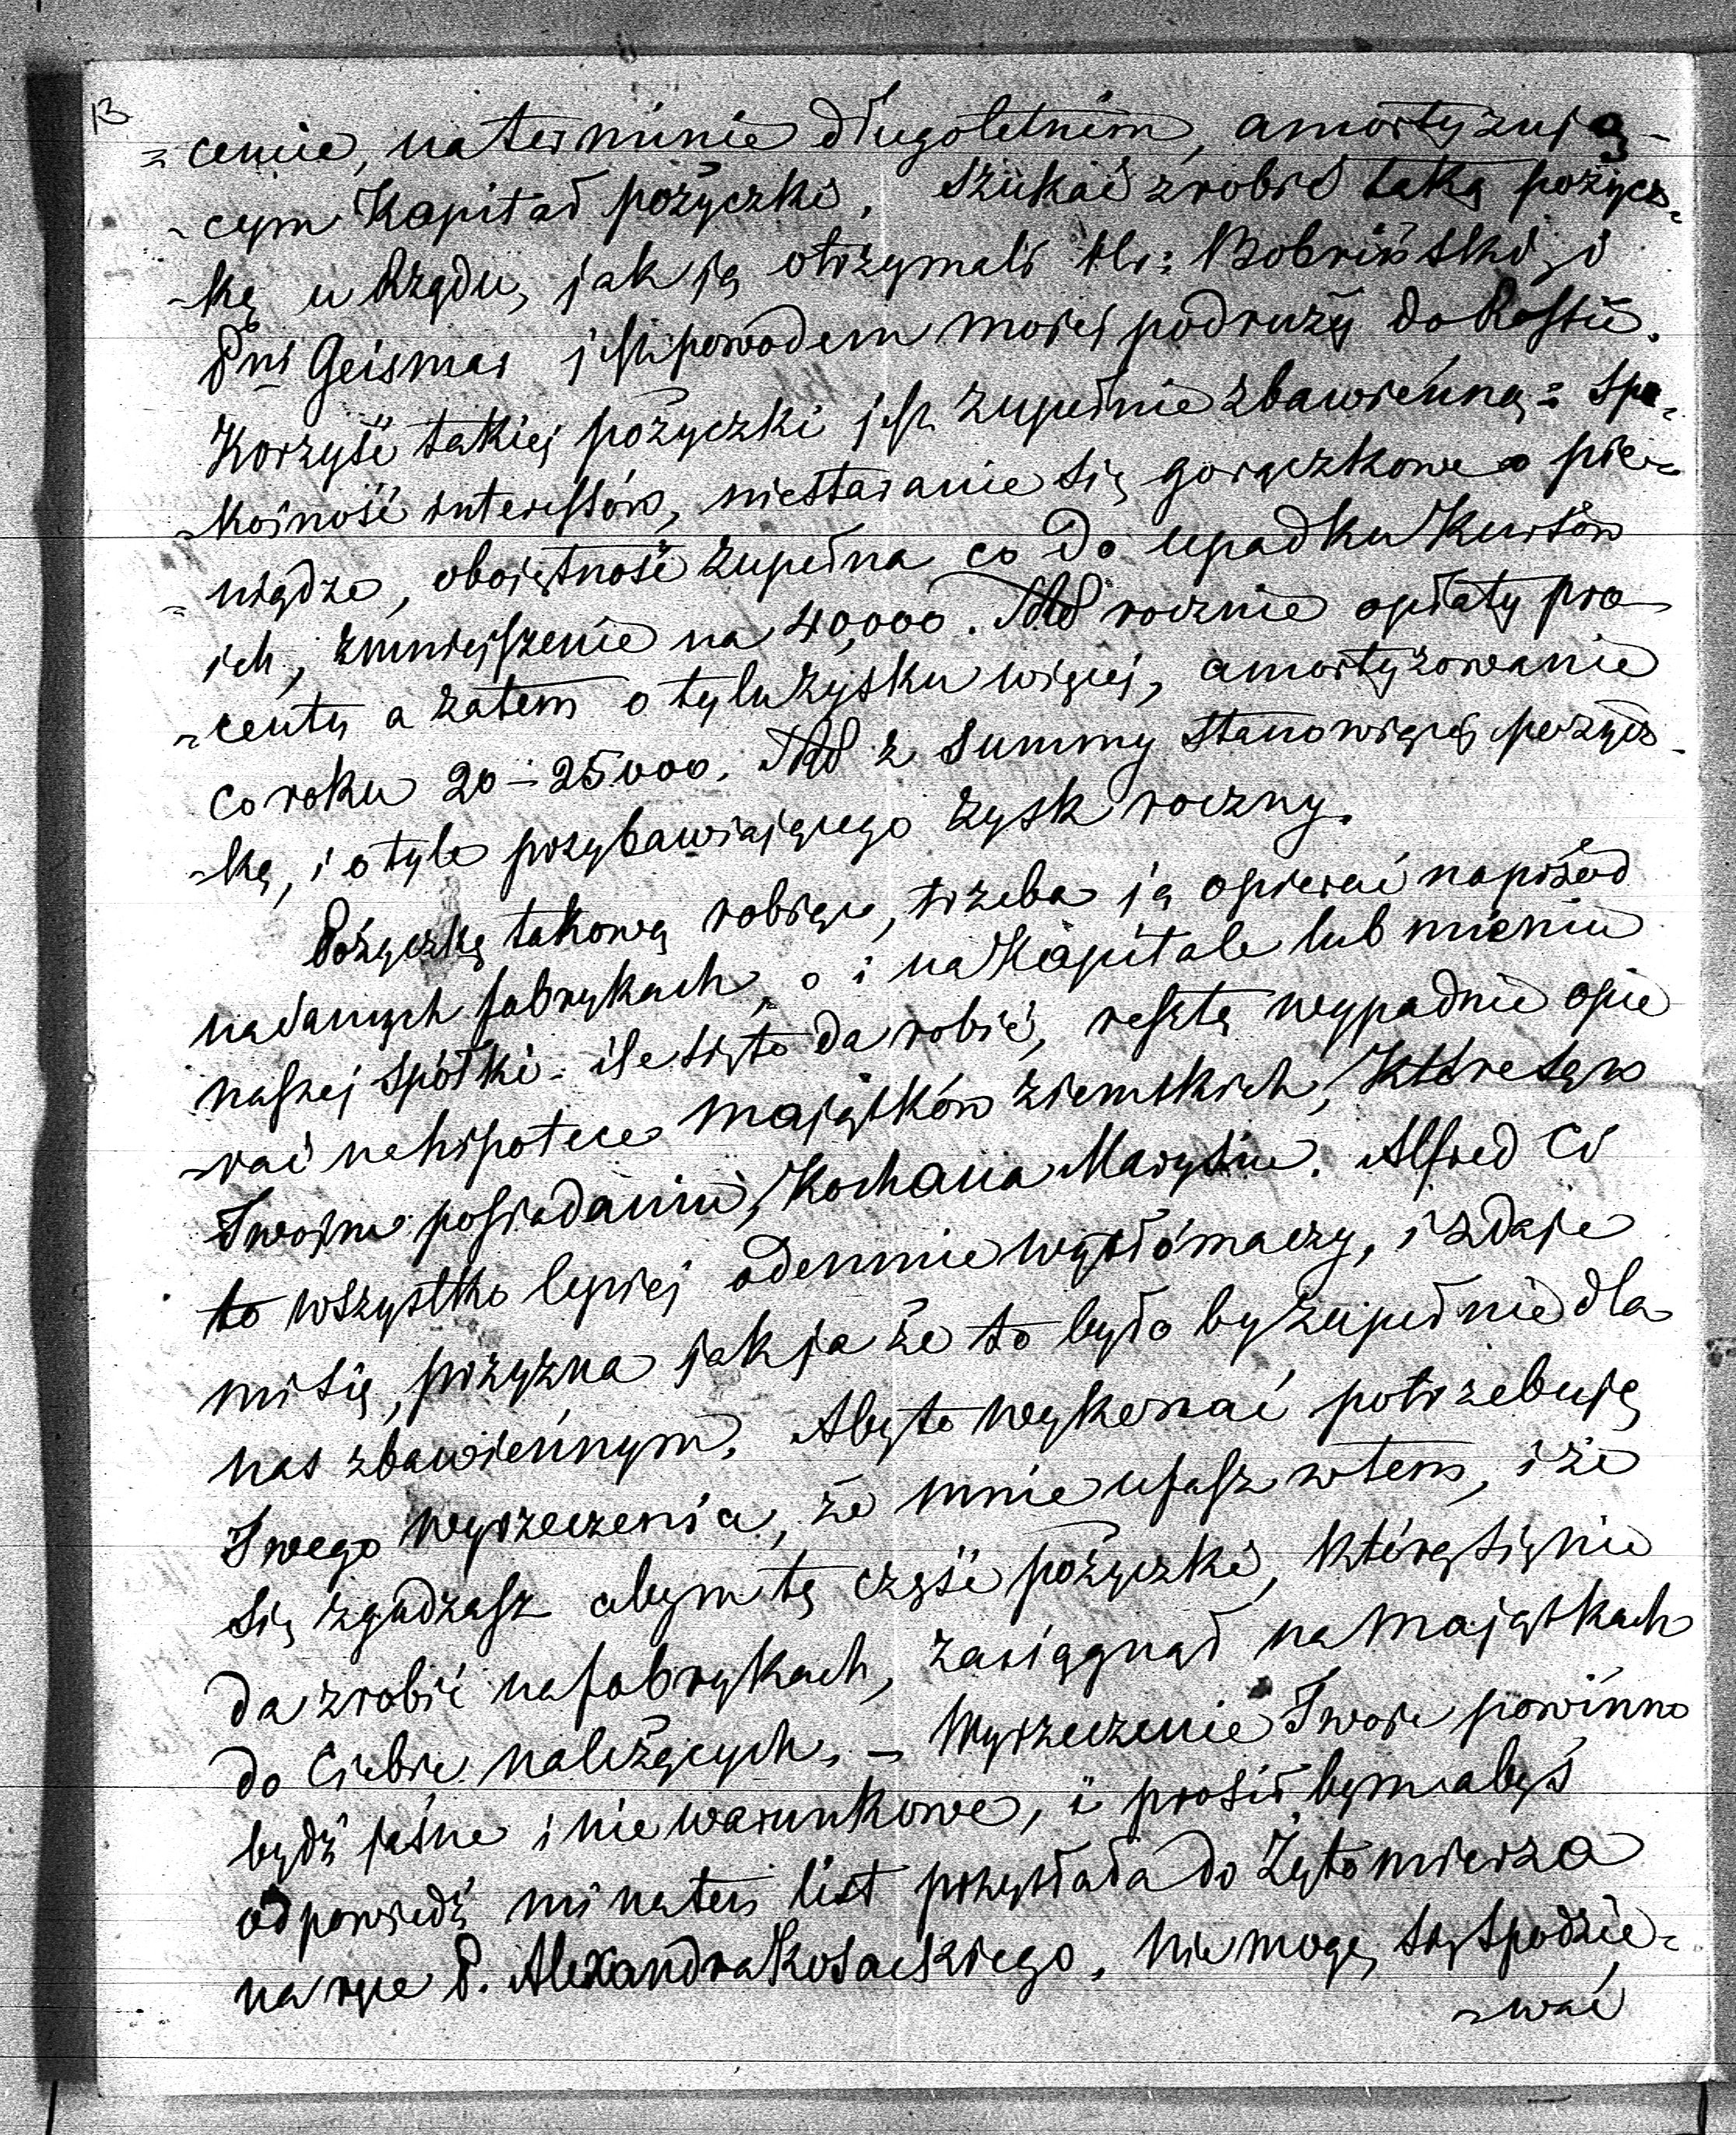 13
=cencie, na terminie długoletnim, amortyzują-
-cym Kapitał pożyczki. Szukać zrobić taką pożycz-
-kę u Rządu, jak ją otrzymali Hr: Bobriński, i
Pni Geismar jest powodem mojej podruży do Rossii.
Korzyść takiej pożyczki jest zupełnie zbawienną: Spo-
-kojność interessów, niestaranie się gorączkowe o pie-
-niądze, obojętność zupełna co do upadku Kursów
ich, zmniejszenie na 40,000. Rbl rocznie opłaty pro-
-centu a zatem o tylu zysku więcej, amortyzowanie
co roku 20-25000. Rbl z Summy stanowiącej pożycz-
-kę, i o tyle przybawiającego zysk roczny.
Pożyczkę takową robiąc, trzeba ją opierać naprzód
na danych fabrykach, o i na Kapitale lub mieniu
naszej Spółki - ile się to da robić, resztę wypadnie opie
-rać na hipotece majątków ziemskich, które są w
Twojem posiadaniu, Kochana Marysiu. Alfred Ci
to wszystko lepiej odemnie wytłómaczy, i zdaje
mi się, przyzna jak ja że to było by zupełnie dla
nas zbawiennym. Aby to wykonać potrzebuję
Twego wyrzeczenia, że mnie ufasz w tem, i że
się zgadzasz abym tę część pożyczki, którą się nie
da zrobić na fabrykach, zaciągnął na majątkach
do Ciebie należących. - Wyrzeczenie Twoje powinno
bydź jaśne i nie warunkowe, i prosił bym abyś
odpowiedź mi na ten list przysłała do Żytomierza
na ręce P. Alexandra Kosackiego. Nie mogę się spodzie-
-wać